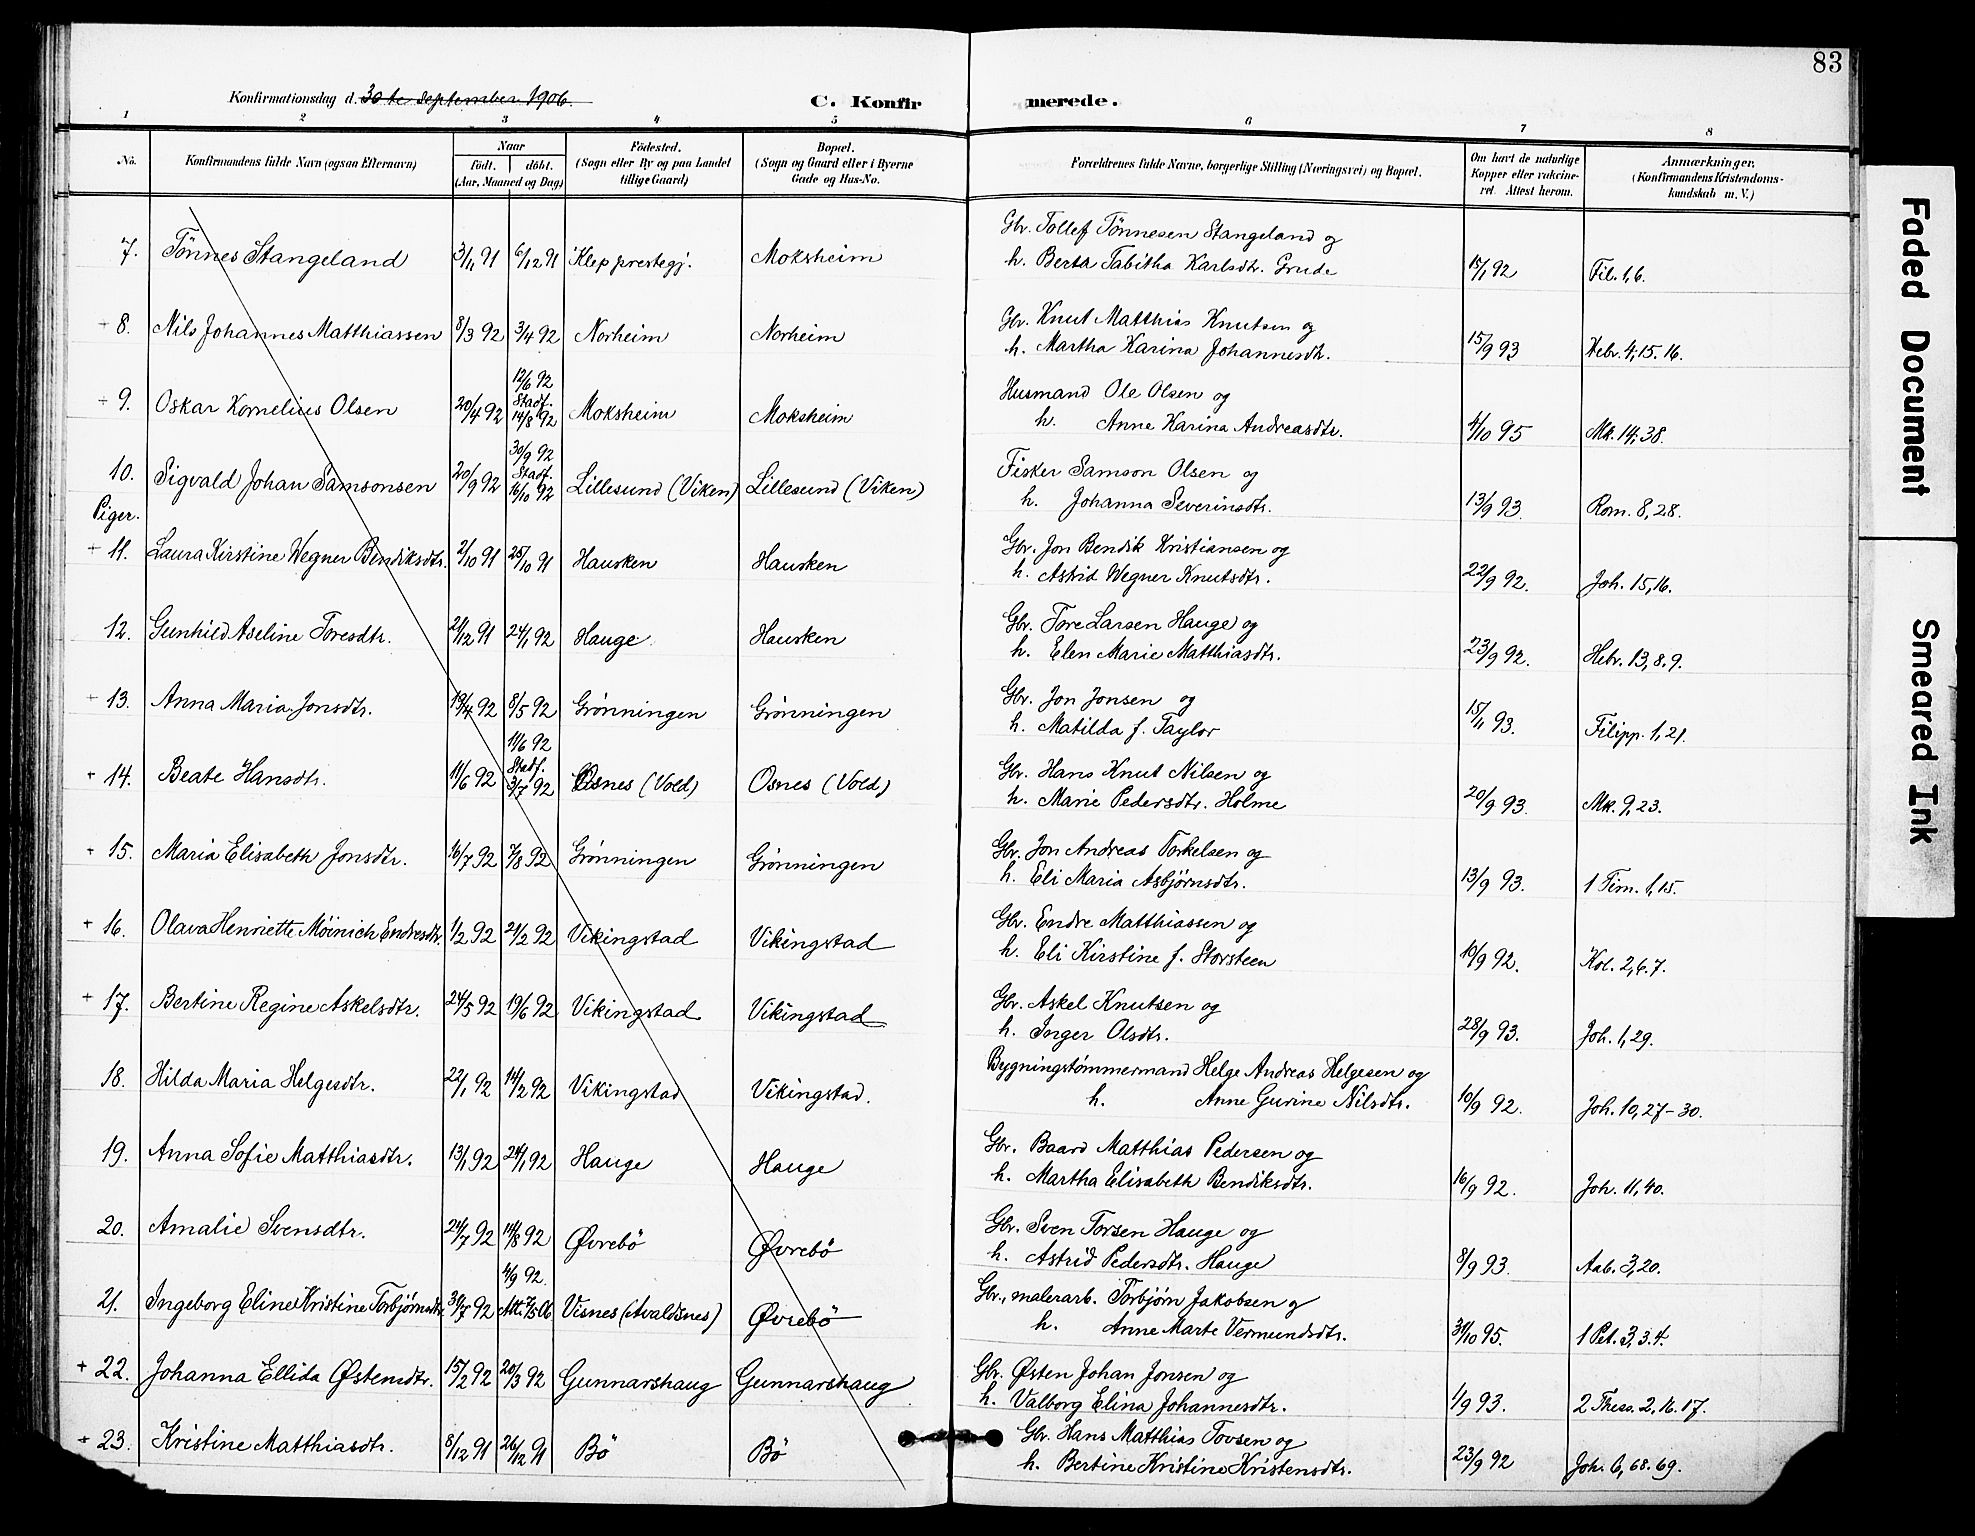 83
Konfirmationsdag d. 30te september 1906.
C. Konfirmerede.
1 2 3 4 5 6 7 8
No.
Konfirmandens fulde Navn (ogsaa Efternavn)
Naar
født. døbt.
(Aar, Maaned og Dag)
Fødested.
(Sogn eller By og paa Landet
tillige Gaard)
Bopæl.
(Sogn og Gaard eller i Byerne
Gade og Hus-No.
Forældrenes fulde Navne, borgerlige Stilling (Næringsvei) og Bopæl.
Om havt de naturlige
Kopper eller vakcine-
ret. Attest herom.
Anmærkninger.
(Konfirmandens Kristendoms-
kundskab m. V.)
7. Tönnes Stangeland 3/11 91 6/12 91 Klep prestegj. Moksheim Gbr. Tollef Tönnesen Stangeland og
h. Berta Tabitha Karlsdtr. Grude 15/1 92 Fil. 1,6.
+ 8. Nils Johannes Matthiassen 8/3 92 3/4 92 Norheim Norheim Gbr. Knut Matthias Knutsen og
h. Martha Karina Johannesdtr. 15/9 93 Hebr. 4,15.16.
+ 9. Oskar Kornelius Olsen 20/4 92 12/6 92 Stadf. 14/8 92 Moksheim Moksheim Husmand Ole Olsen og
h. Anne Karina Andreasdtr. 4/10 95 Mk. 14,38.
10. Sigvald Johan Samsonsen 20/9 92 30/9 92 Stadf. 16/10 92 Lillesund (Viken) Lillesund (Viken) Fisker Samson Olsen og
h. Johanna Severinsdtr. 13/9 93. Rom. 8,28.
Piger.
+ 11. Laura Kirstine Wegner Bendiksdtr. 2/10 91 25/10 91 Hausken Hausken Gbr. Jon Bendik Kristiansen og
h. Astrid Wegner Knutsdtr. 22/9 92. Joh. 15,16.
12. Gunhild Aseline Toresdtr. 21/12 91 24/1 92 Hauge Hausken Gbr. Tore Larsen Hauge og
h. Elen Marie Matthiasdtr. 23/9 92. Hebr. 13,8.9.
+ 13. Anna Maria Jonsdtr. 19/4 92 8/5 92 Grönningen Grönningen Gbr. Jon Jonsen og
h. Matilda f. Taylor 15/11 93. Filipp. 1,21.
+ 14. Beate Hansdtr. 11/6 92 11/6 92 Stadf. 3/7 92 Osnes (Vold) Osnes (Vold) Gbr. Hans Knut Nilsen og
h. Marie Pedersdtr. Holme 20/9 93. Mk. 9,23.
+ 15. Maria Elisabeth Jonsdtr. 16/7 92 7/8 92 Grönningen Grönningen Gbr. Jon Andreas Torkelsen og
h. Eli Maria Asbjörnsdtr. 13/9 93. 1 Tim. 1,15.
+ 16. Olava Henriette Möinich Endresdtr. 1/2 92 21/2 92 Vikingstad Vikingstad Gbr. Endre Matthiassen og
h. Eli Kirstine f. Storsteen 10/9 92. Kol. 2,6.7.
+ 17. Bertine Regine Askelsdtr. 24/5 92 19/6 92 Vikingstad Vikingstad Gbr. Askel Knutsen og
h. Inger Olsdtr. 28/9 93. Joh. 1,29.
18. Hilda Maria Helgesdtr. 22/1 92 14/2 92 Vikingstad Vikingstad. Bygningstømmermand Helge Andreas Helgesen og
h. Anne Gurine Nilsdtr. 10/9 92. Joh. 10,27-30.
19. Anna Sofie Matthiasdtr. 13/1 92 24/1 92 Hauge Hauge Gbr. Baard Matthias Pedersen og
h. Martha Elisabeth Bendiksdtr. 16/9 92. Joh. 11,40.
20. Amalie Svensdtr. 24/7 92 14/8 92 Øvrebö Øvrebö Gbr. Sven Torsen Hauge og
h. Astrid Pedersdtr. Hauge 8/9 93. Aab. 3,20.
21. Ingeborg Eline Kristine Torbjörnsdtr. 30/7 92 4/9 92. Att. 7/5 06 Visnes (Avaldsnes) Øvrebö Gbr., malerarb. Torbjörn Jakobsen og
h. Anne Marte Vermundsdtr. 31/10 95. 1 Pet. 3,3.4.
+ 22. Johanna Ellida Østensdtr. 15/2 92 20/3 92 Gunnarshaug Gunnarshaug Gbr. Østen Johan Jonsen og
h. Valborg Elina Johannesdtr. 1/9 93. 2 Thess. 2,16.17.
+ 23. Kristine Matthiasdtr. 8/12 91 26/12 91 Bö Bö Gbr. Hans Matthias Tovsen og
h. Bertine Kristine Kristensdtr. 23/9 92 Joh. 6,68.69.
Faded Document
Smeared Ink